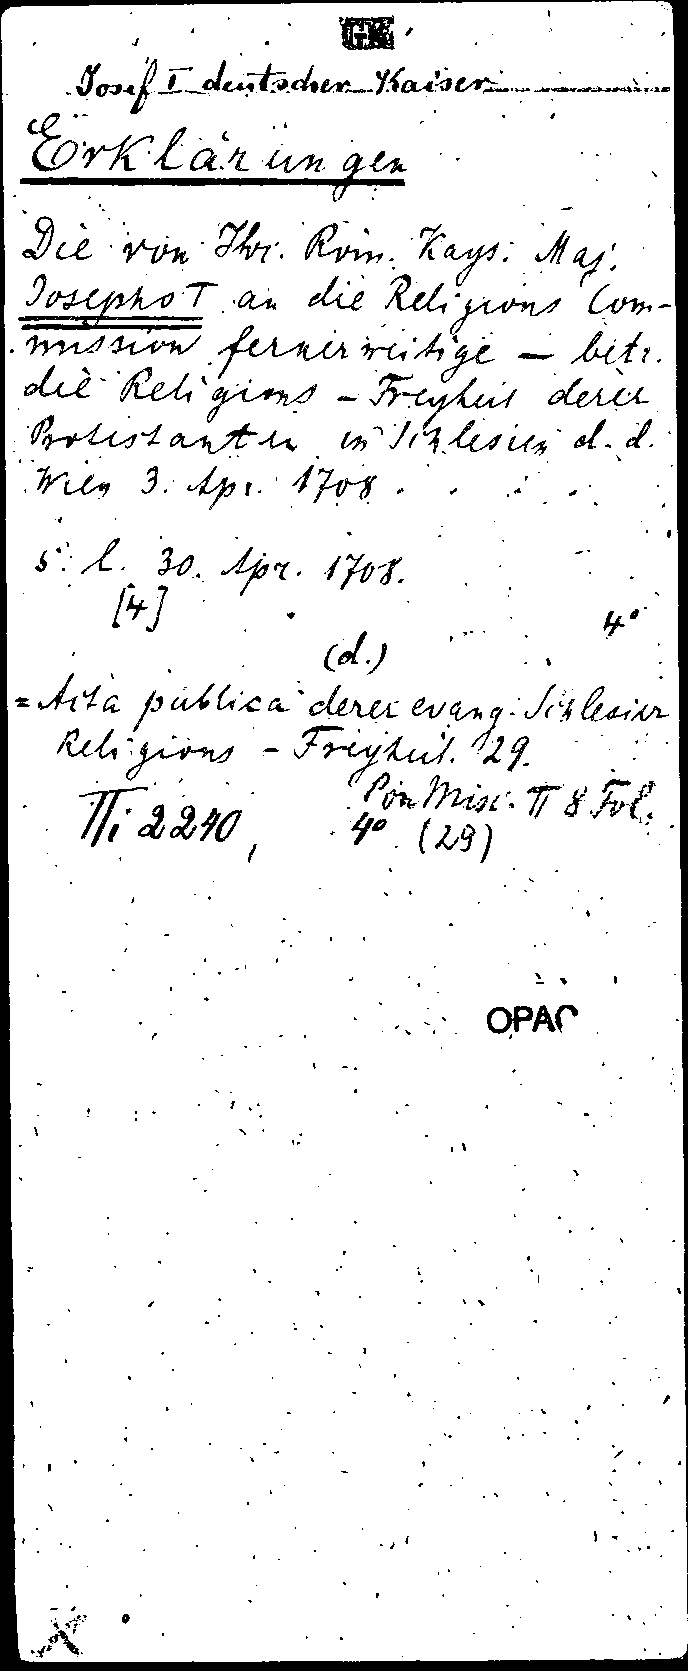 GK
Josef I deutscher Kaiser
Erklärungen
Die von Ihr. Röm. Kays. Maj.
Josepho I an die Religions Com-
mission fernerweitige – betr.
die Religions – Freyheit derer
Protestanten in Schlesien d. d.
Wien 3. Apr. 1708.
s. l. 30. Apr. 1708.
[4] 4°
(d.)
= Acta publica derer evang. Schlesier
Religions – Freyheit. 29.
Misc. II 8 Fol.
IIi 2240, 4° (29)
OPAC